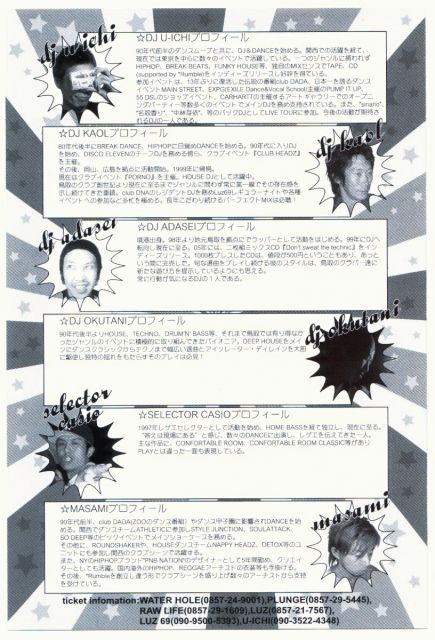 dj u-ichi
☆DJ U-ICHIプロフィール
90年代前半のダンスムーブと共に、DJ＆DANCEを始める。関西での活躍を経て、
現在では東京を中心に数々のイベントで活躍している。一つのジャンルに捕われず
HIPHOP、BREAK BEATS、FUNKY HOUSE等、独自のMIXセンスでTAPE、CD
(supported by "Rumble)をインディーズリリースし好評を得ている。
参加イベントは、13年ぶりに復活した伝説の番組club DADA、日本一を誇るダンス
イベントMAIN STREET、EXPG(EXILE Dance&Vocal School)主催のPUMP IT UP、
55 DSLのショップイベント、CARHARTTの主催するアートギャラリーでのオープ
ニングパーティー等数多くのイベントでメインDJを務め支持されている。また、"sinario"、
"名取香り"、"中林芽依"、等のバックDJとしてLIVE TOURに参加。今後の活動が期待さ
れるDJの一人である。
dj kaol
☆DJ KAOLプロフィール
80年代後半にBREAK DANCE、HIPHOPに目覚めDANCEを始める。90年代に入りDJ
を始め、DISCO ELEVENのチーフDJを務める傍ら、クラブイベント『CLUB HEADZ』
を主催。
その後、岡山、広島を拠点に活動開始。1999年に帰鳥。
現在はクラブイベント『PORNO』を主催、HOUSE DJとして活躍中。
鳥取のクラブ創世記より現在に至るまでジャンルに問わず常に第一線でその存在感を
示し続けてきた重鎮。club DNAのレジデントDJを務めLuz69レギュラーナイトや各種
イベントへの参加など多忙を極める。長年こだわり続けるパーフェクトMIXは必聴！
dj adasei
☆DJ ADASEIプロフィール
境港出身。98年より地元鳥取を拠点にてラッパーとして活動をはじめる。99年にDJへ
転向し現在に至る。05年には、二枚組ミックスCD『Don't sweat the technic』をイン
ディーズリリース。1000枚プレスしたCDは、値段が500円ということもあり、あっと
いう間に完売した。明な選曲をプレイし続ける彼のスタイルは、鳥取のクラバー達に
新たな遊び方を提示しているようにも思える。
常に行動が気になるDJの1人である。
dj okutani
☆DJ OKUTANIプロフィール
90年代後半よりHOUSE、TECHNO、DRUM'N' BASS等、それまで鳥取では有り得なか
ったジャンルのイベントに積極的に取り組んできたパイオニア。DEEP HOUSEをメイ
ンにダンスクラシックからテクノまで幅広い選曲とアイソレーター・ディレインを大胆
に駆使し独特の揺れをもたらすそのプレイは必見！
selector casio
☆SELECTOR CASIOプロフィール
1997年レゲエセレクターとして活動を始め、HOME BASSを経て独立し、現在に至る。
"答えは現場にある"と感じ、数々のDANCEに出演し、レゲエを伝えてきた一人。
主な作品に、CONFORTABLE ROOM、CONFORTABLE ROOM CLASSIC等があり
PLAYとは違った一面も表現している。
masami
☆MASAMIプロフィール
90年代前半、club DADA(ZOOのダンス番組）やダンス甲子園に影響されDANCEを始
める。関西でダンスチームATHLETICに参加しSTYLE JUNCTION、SOULATTACK、
SO DEEP等のビックイベントでメインショーケースを務める。
その他に、ROUNDSHAKERや、HOUSEダンスチームNAPPY HEADZ、DETOX等のユ
ニットにも参加し関西のクラブシーンで活躍する。
また、NYのHIPHOPブランド"PNB NATION"のデザイナーとして5年間勤め、クリエイ
ターとしても活躍。国内海外のHIPHOP、REGGAEアーチストの衣装等も手掛ける。
その後、"Rumbleを創立し違う形でクラブシーンを盛り上げ数々のアーチストから支持
を受けている。
ticket infomation:WATER HOLE(0857-24-9001),PLUNGE(0857-29-5445),
RAW LIFE(0857-29-1609),LUZ(0857-21-7567),
LUZ 69(090-9500-5393),U-ICHI(090-3522-4348)